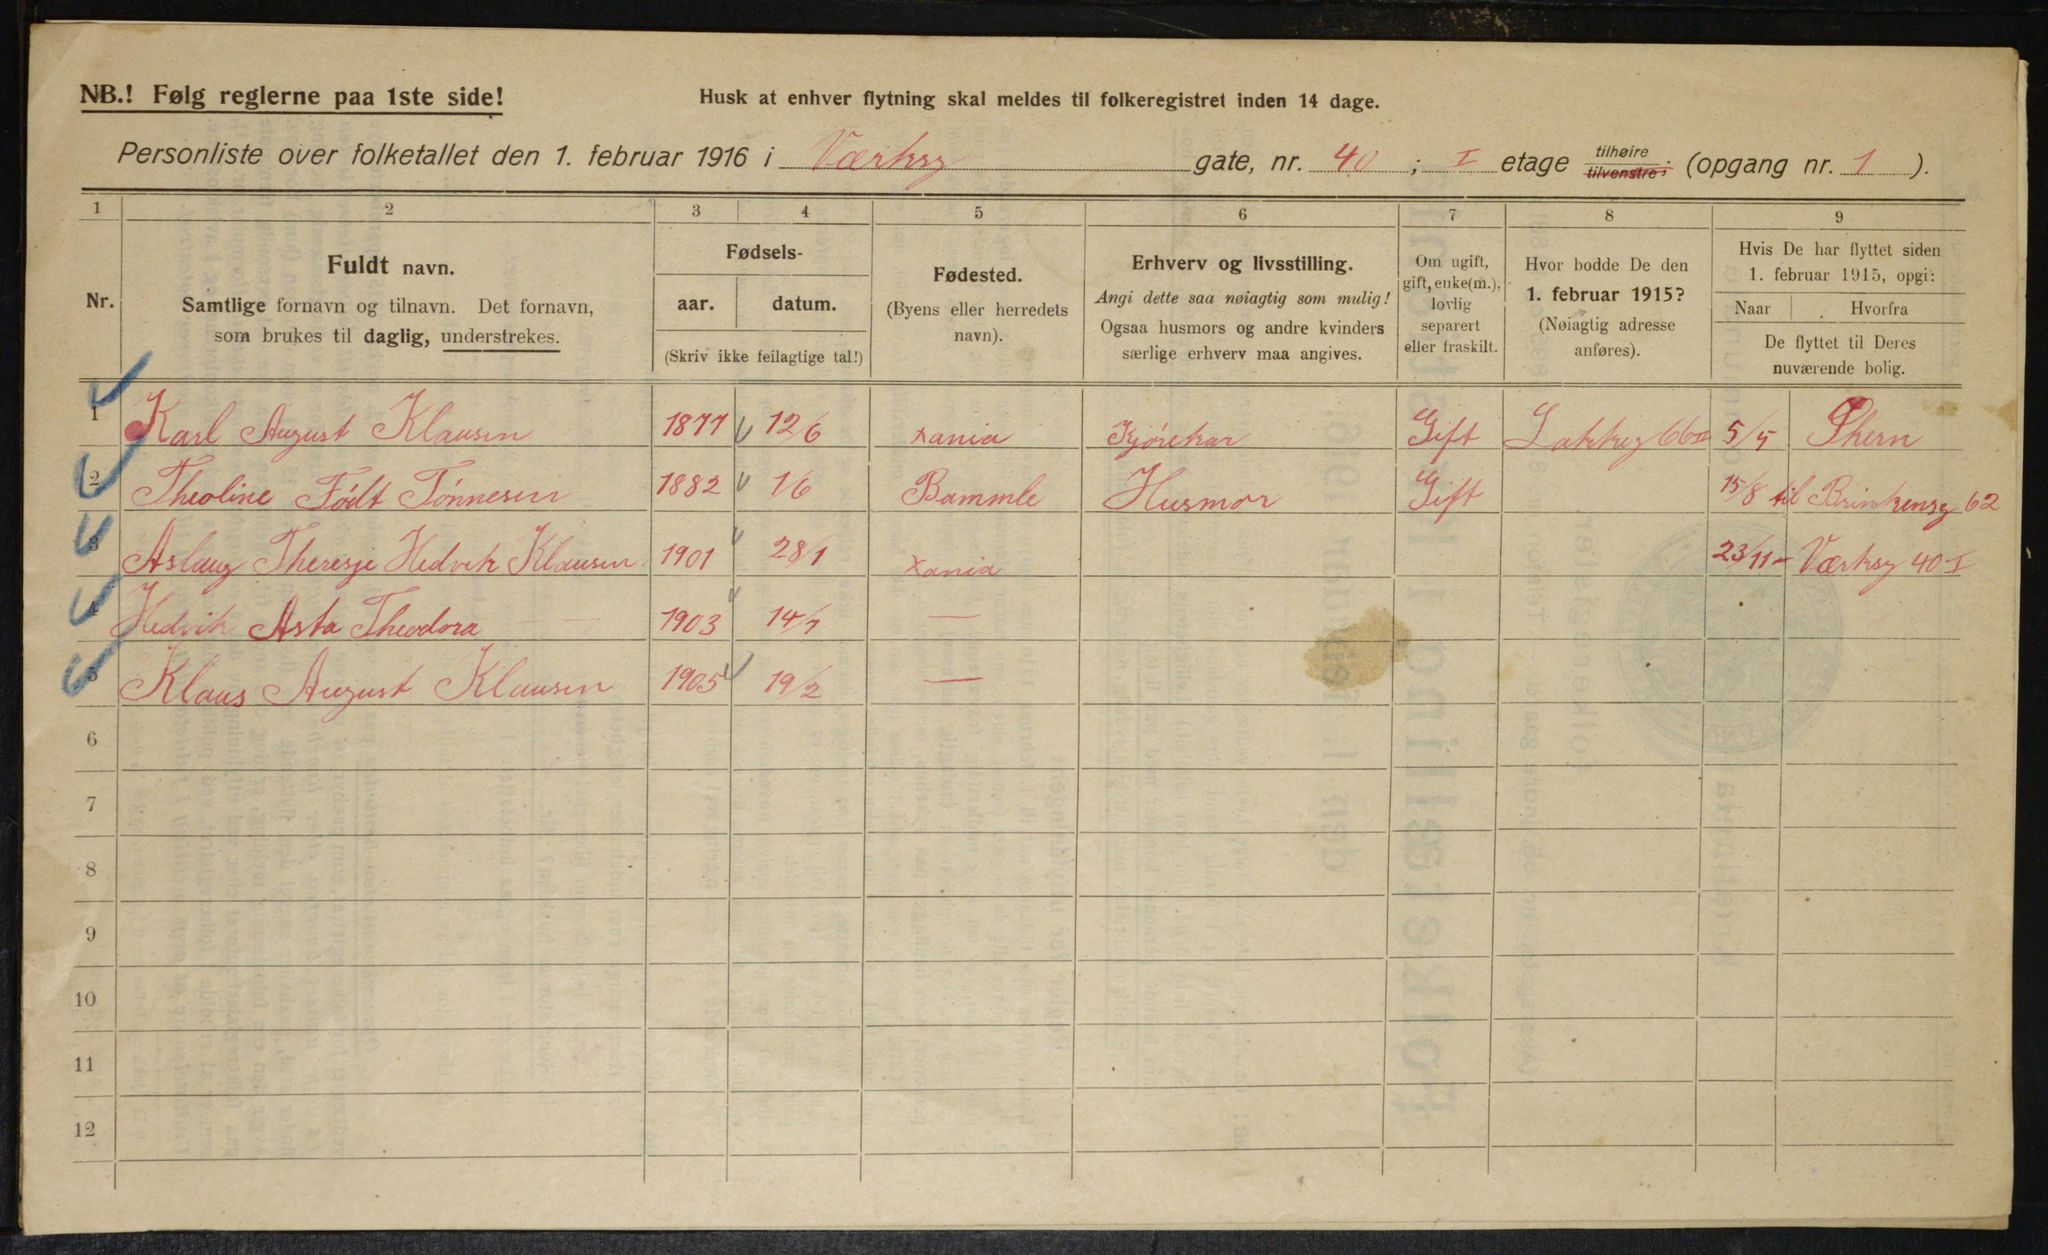 NB.! Følg reglerne paa 1ste side!
Husk at enhver flytning skal meldes til folkeregistret inden 14 dage.
Personliste over folketallet den 1. februar 1916 i Værksg gate, nr. 40 ; I etage tilhøire tilvenstre; (opgang nr. 1 ).
1 2 3 4 5 6 7 8 9
Nr.
Fuldt navn.
Samtlige fornavn og tilnavn. Det fornavn,
som brukes til daglig, understrekes.
Fødsels-
aar. datum.
(Skriv ikke feilagtige tal!)
Fødested.
(Byens eller herredets
navn).
Erhverv og livsstilling.
Angi dette saa nøiagtig som mulig!
Ogsaa husmors og andre kvinders
særlige erhverv maa angives.
Om ugift,
gift, enke(m.),
lovlig
separert
eller fraskilt.
Hvor bodde De den
1. februar 1915?
(Nøiagtig adresse
anføres).
Hvis De har flyttet siden
1. februar 1915, opgi:
Naar Hvorfra
De flyttet til Deres
nuværende bolig.
1 Karl August Klausen 1877 12/6 Xania Kjørekar Gift 66 5/5
2 Theoline Født Tönnesen 1882 1/6 Bammle Husmor Gift 15/8 til Brinkensg 62
3 Aslaug Theresje Hedvik Klausen 1901 28/1 Xania 23/11 - Værksg 40 I
4 Hedvik Asta Theodora — 1903 14/1 —
5 Klaus August Klausen 1905 19/2 —
6
7
8
9
10
11
12